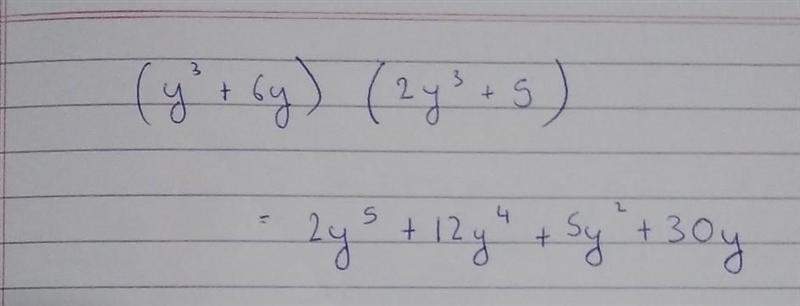 (y³ + 6y) (2y³ + 5)
= 2y⁵ + 12y⁴ + 5y² + 30y